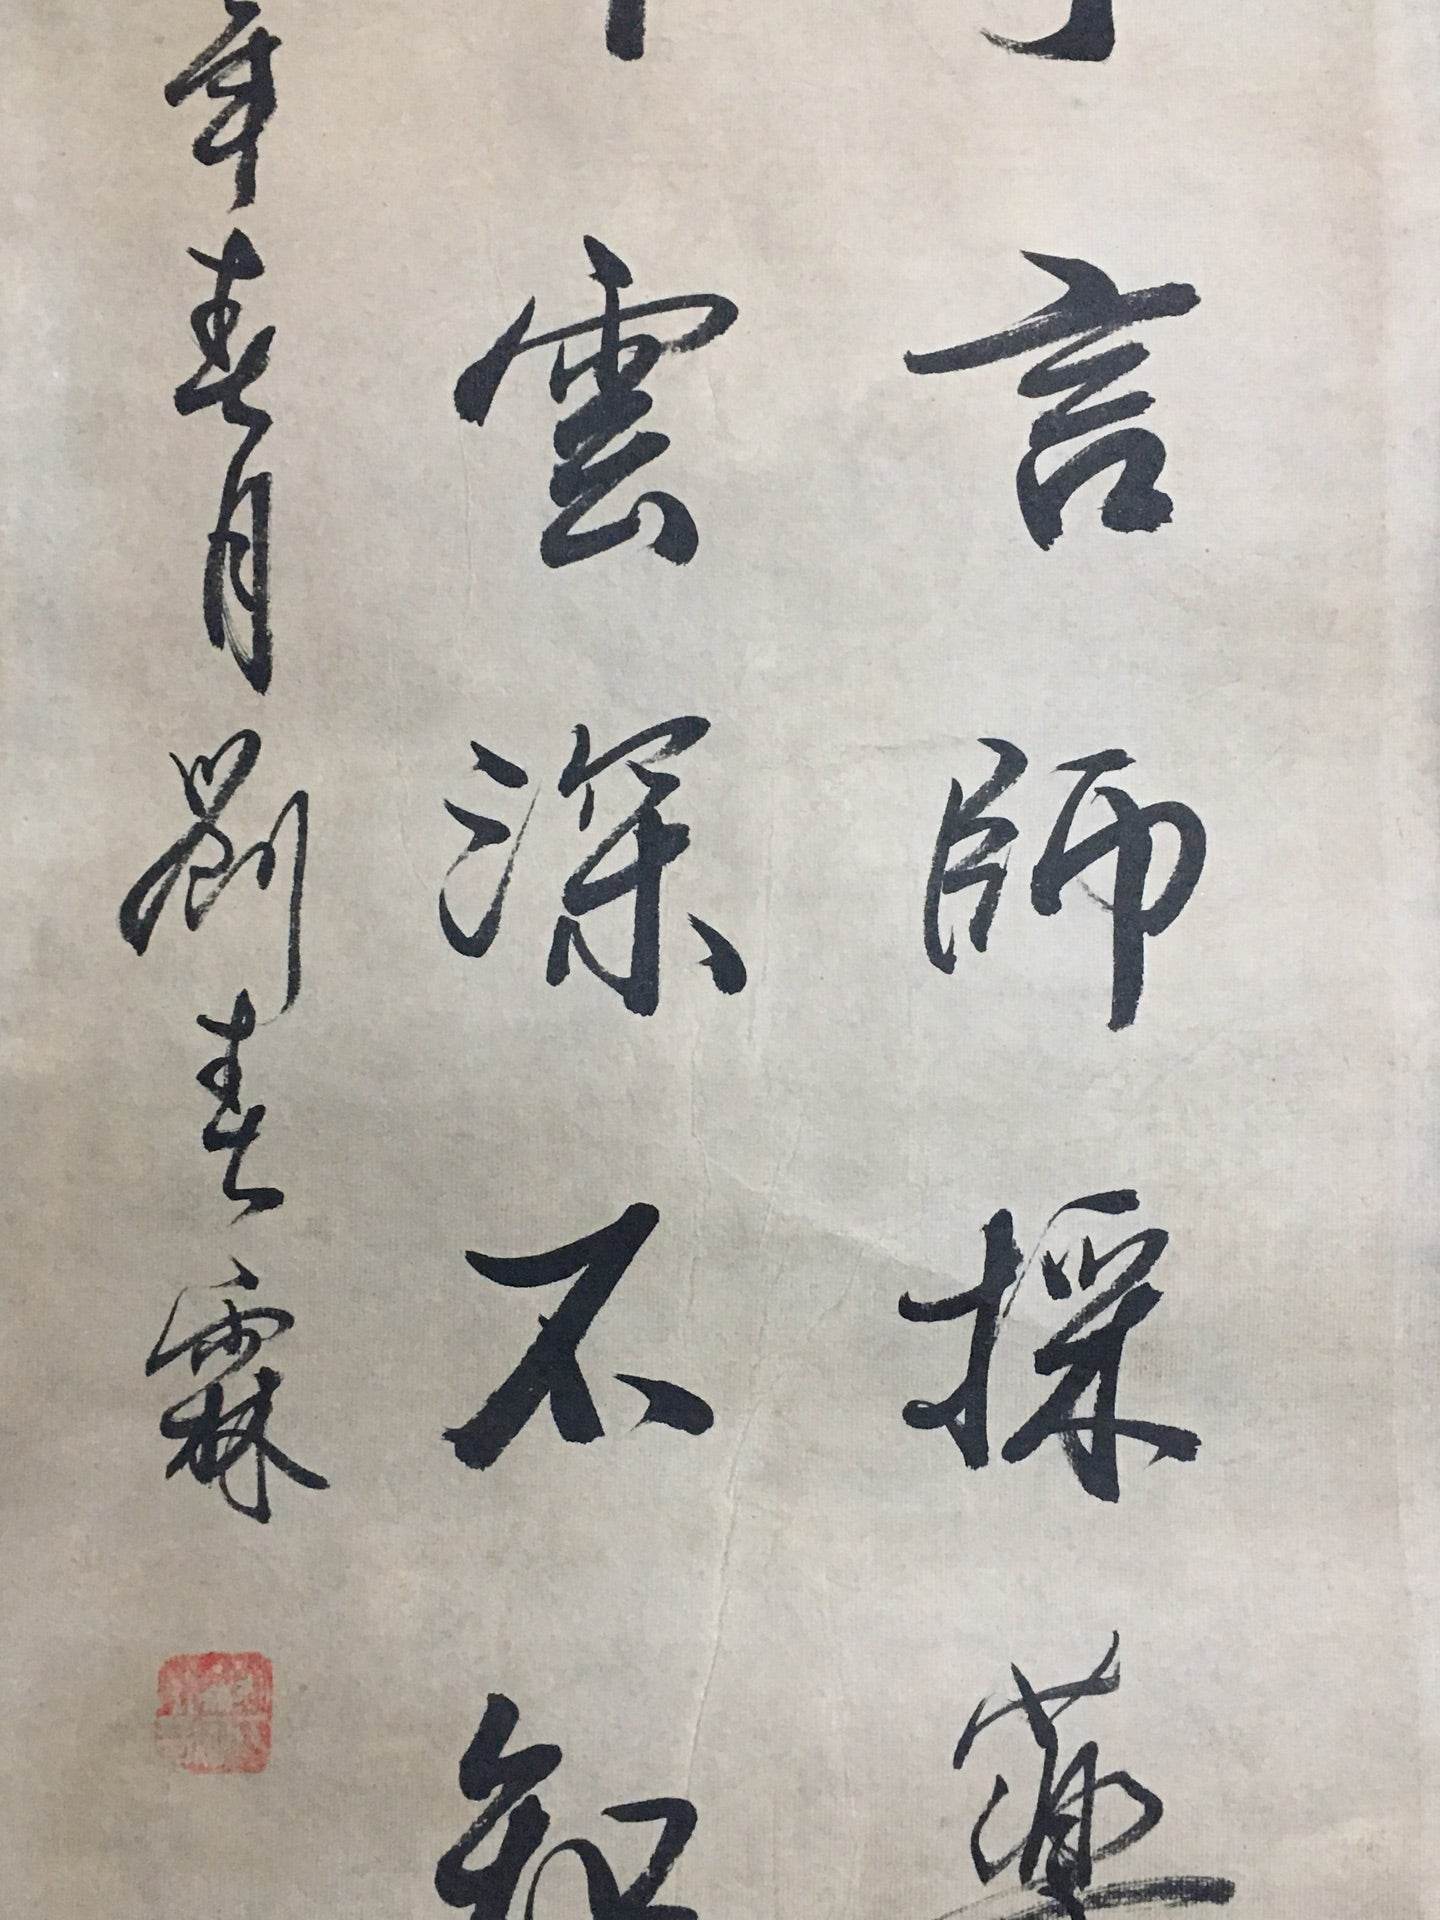 言師採藥
雲深不知
年春月劉春霖